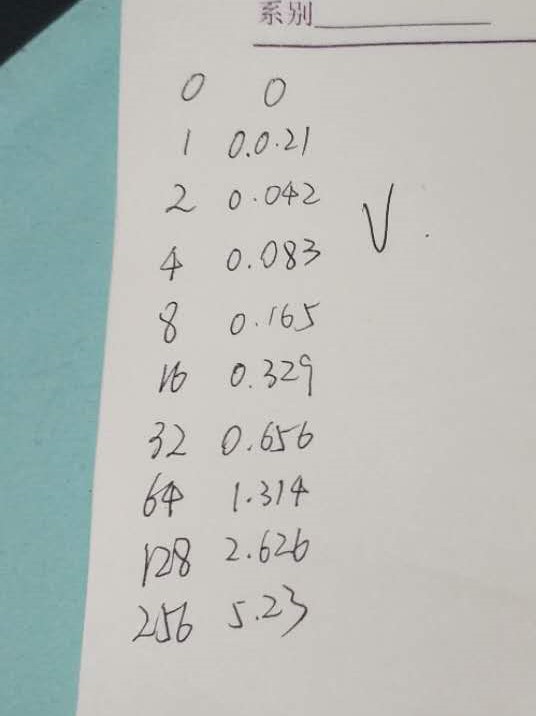 系别
0 0
1 0.0.21
2 0.042
4 0.083
8 0.165
16 0.329
32 0.656
64 1.314
128 2.626
256 5.23
V.